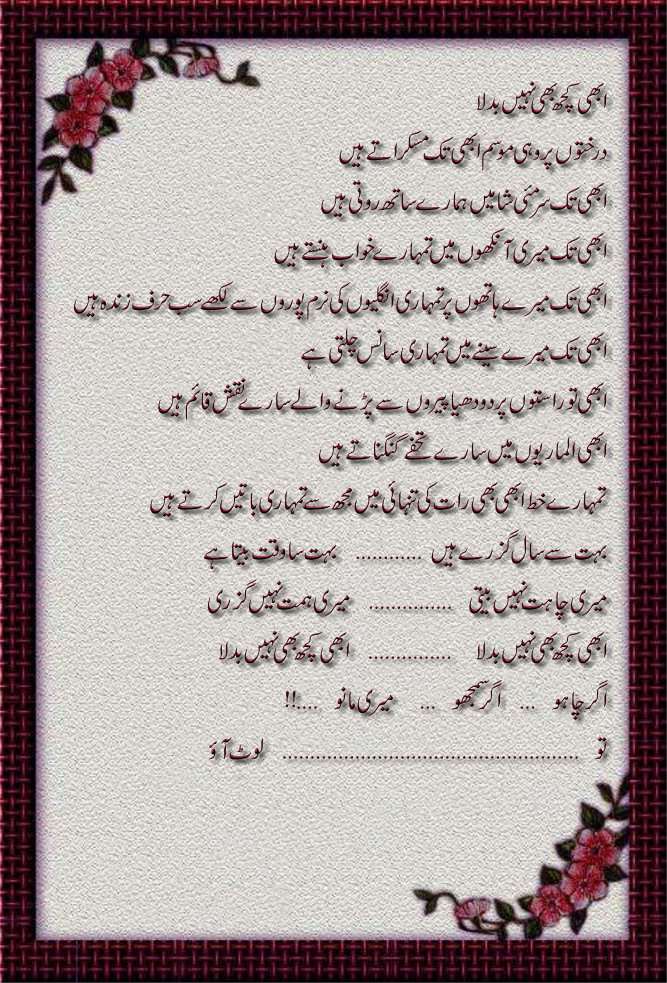 ابھی کچھ بھی نہیں بدلا
درختوں پر وہی موسم ابھی تک مسکراتے ہیں
ابھی تک سرمئی شامیں ہمارے ساتھ روتی ہیں
ابھی تک میری آنکھوں میں تمہارے خواب ہنستے ہیں
ابھی تک میرے ہاتھوں پر تمہاری انگلیوں کی نرم پوروں سے لکھے سب حرف زندہ ہیں
ابھی تک میرے سینے میں تمہاری سانس چلتی ہے
ابھی تو راستوں پر دودھیا پیروں سے پڑنے والے سارے نقش قائم ہیں
ابھی الماریوں میں سارے تحفے گنگناتے ہیں
تمہارے خط ابھی بھی رات کی تنہائی میں مجھ سے تمہاری باتیں کرتے ہیں
بہت سے سال گزرے ہیں ............ بہت سا وقت بیتا ہے
میری چاہت نہیں بیتی ............... میری ہمت نہیں گزری
ابھی کچھ بھی نہیں بدلا ............... ابھی کچھ بھی نہیں بدلا
اگر چاہو ... اگر سمجھو ... میری مانو ....!!
تو ...................................................... لوٹ آؤ